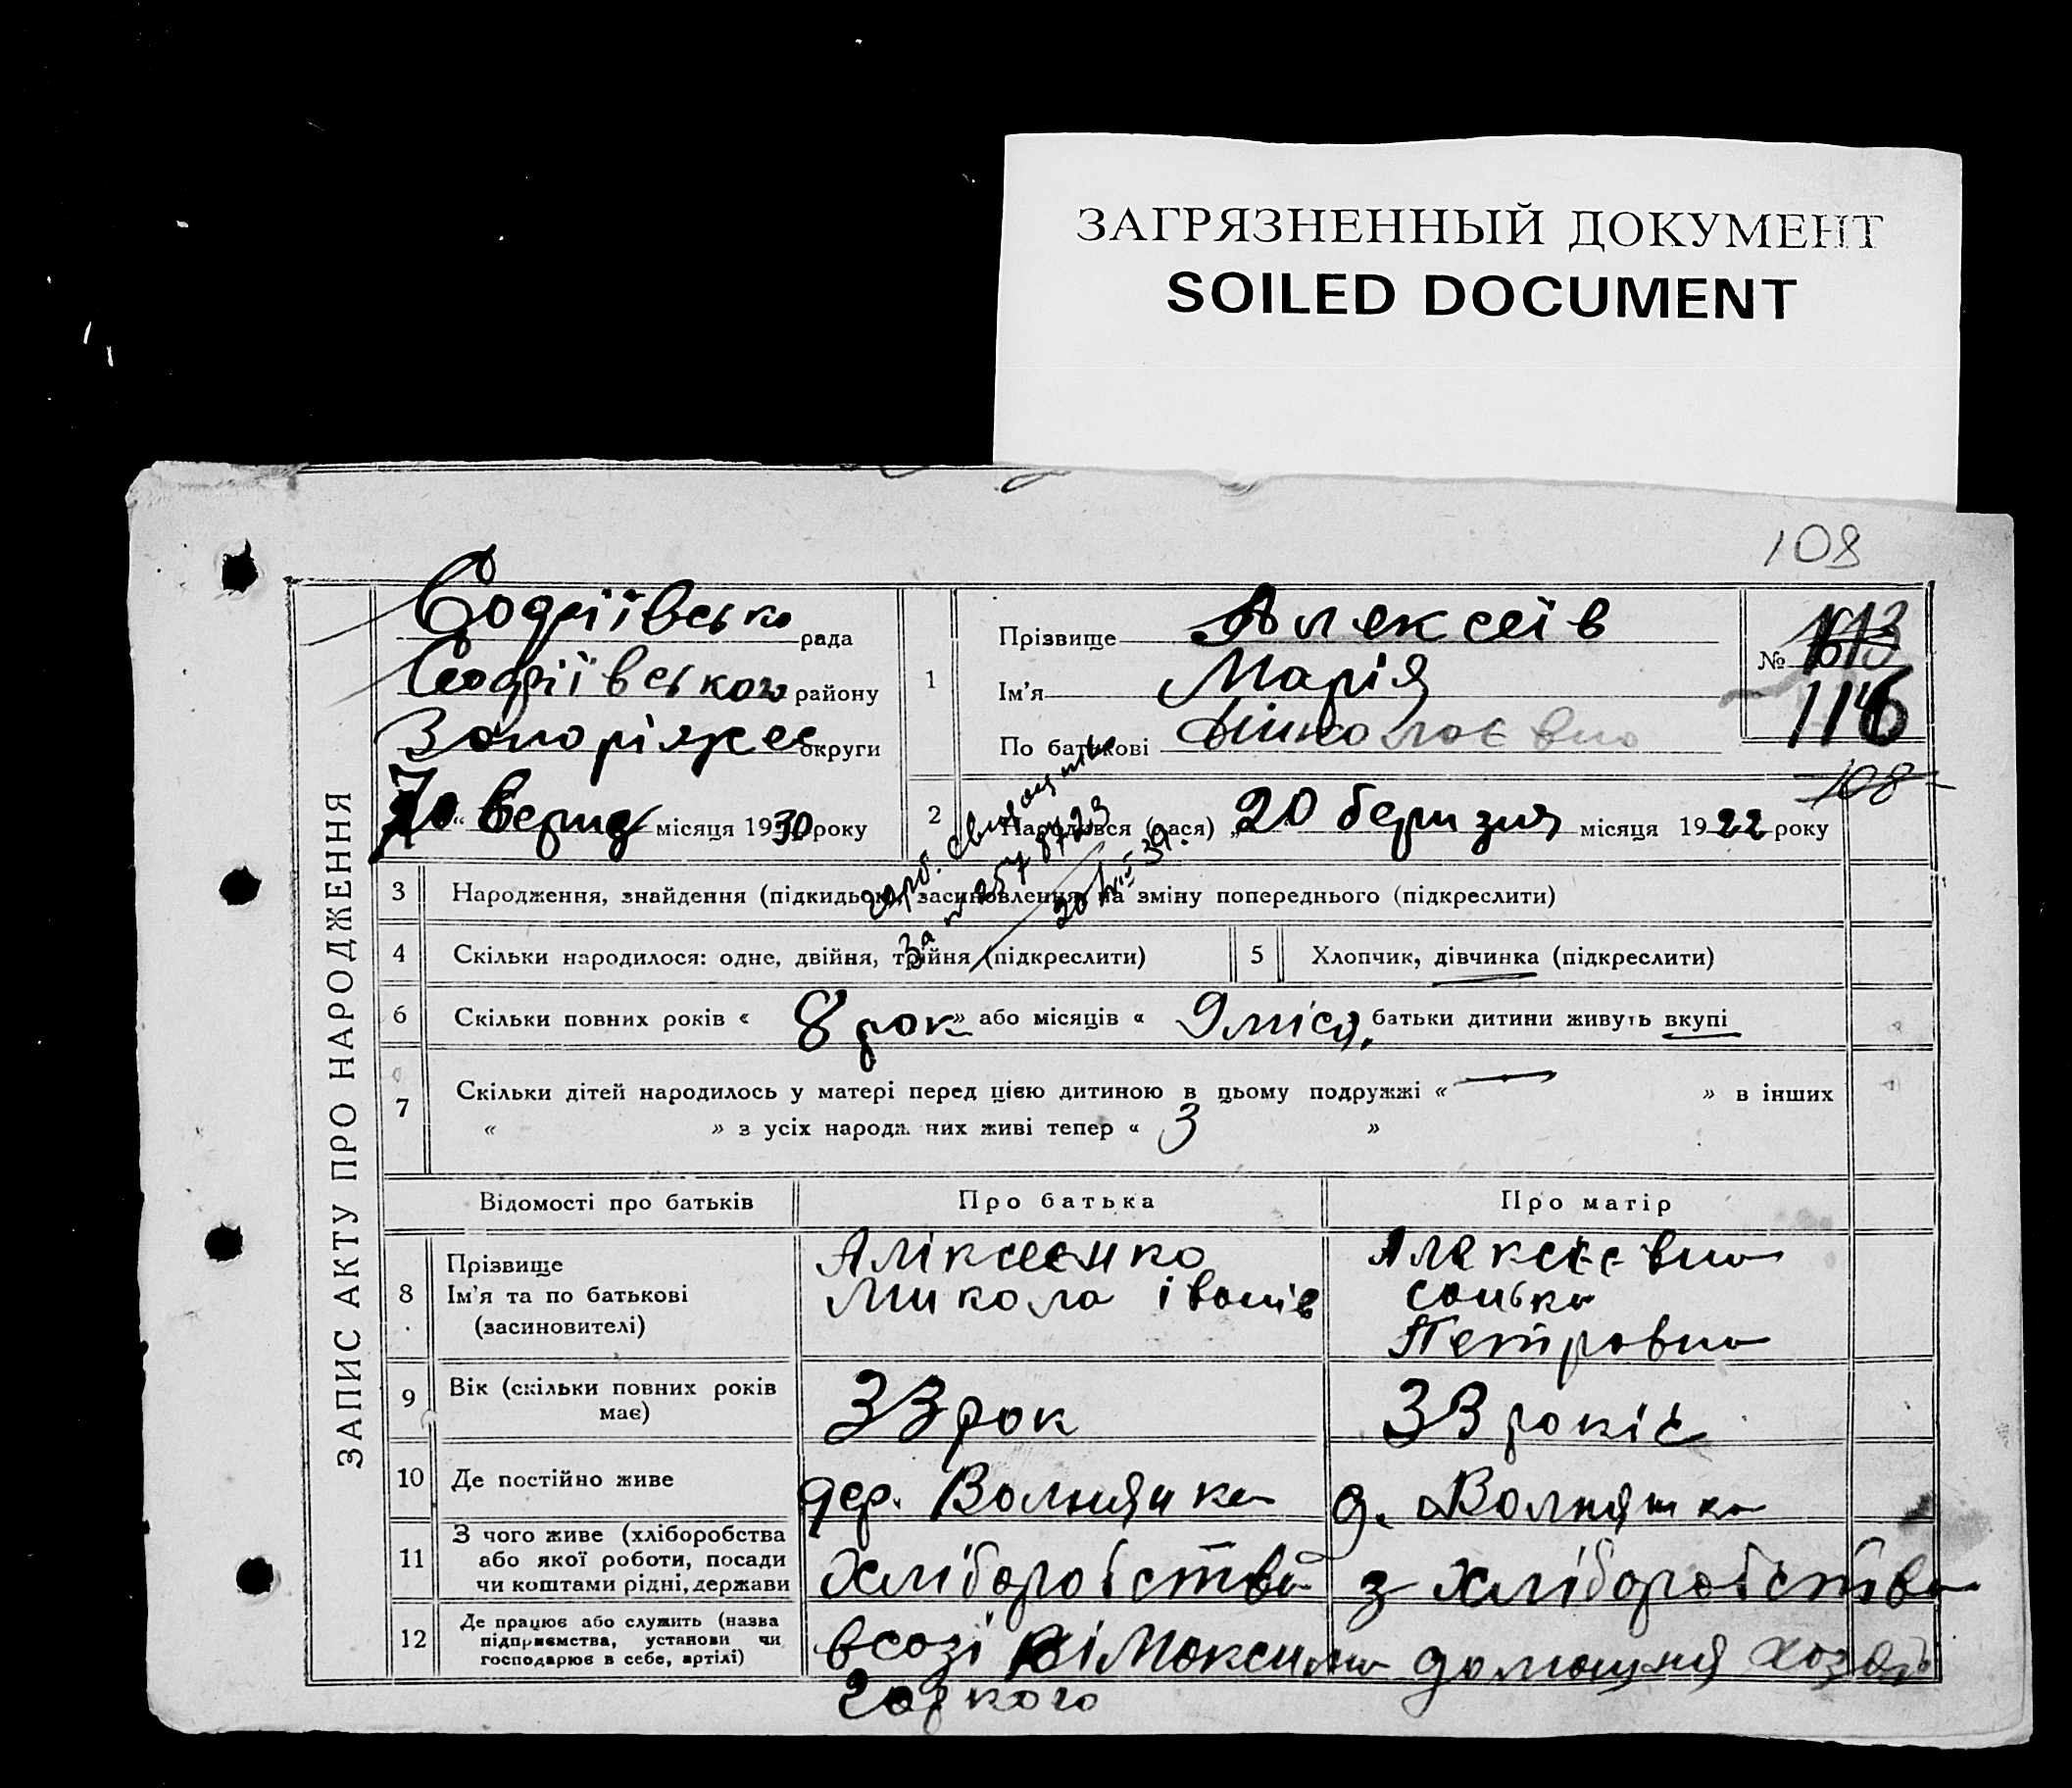 ЗАГРЯЗНЕННЫЙ ДОКУМЕНТ
SOILED DOCUMENT
108
ЗАПИС АКТУ ПРО НАРОДЖЕННЯ
Софіївсько рада
Софіївського району
округи
місяця 1930 року
1
Прізвище Алексеїв
Ім'я Марія
По батькові Николаєвна
№
116
108
2 Народився (лася) „20 березня місяця 1922 року
3 Народження, знайдення (підкидьок), засиновлення, на зміну попереднього (підкреслити)
4 Скільки народилося: одне, двійня, трійня (підкреслити)
5 Хлопчик, дівчинка (підкреслити)
6 Скільки повних років « 8 рок » або місяців « 9 міся, батьки дитини живуть вкупі
7 Скільки дітей народилось у матері перед цією дитиною в цьому подружжі « — » в інших
« » з усіх народж них живі тепер « 3 »
Відомості про батьків Про батька Про матір
8 Прізвище
Ім'я та по батькові
(засиновителі)
Аліксеєнко
Микола іванів
Алексеєвна
Сонька
Петровна
9 Вік (скільки повних років має) 33 рок 33 років
10 Де постійно живе дер. Волнянка д. Волнянка
11 З чого живе (хліборобства
або якої роботи, посади
чи коштами рідні, держави
хліборобства з хліборобства
12 Де працює або служить (назва
підприємства, установи чи
господарює в себе, артілі)
в созі Максима
Горкого
домашня хозяй